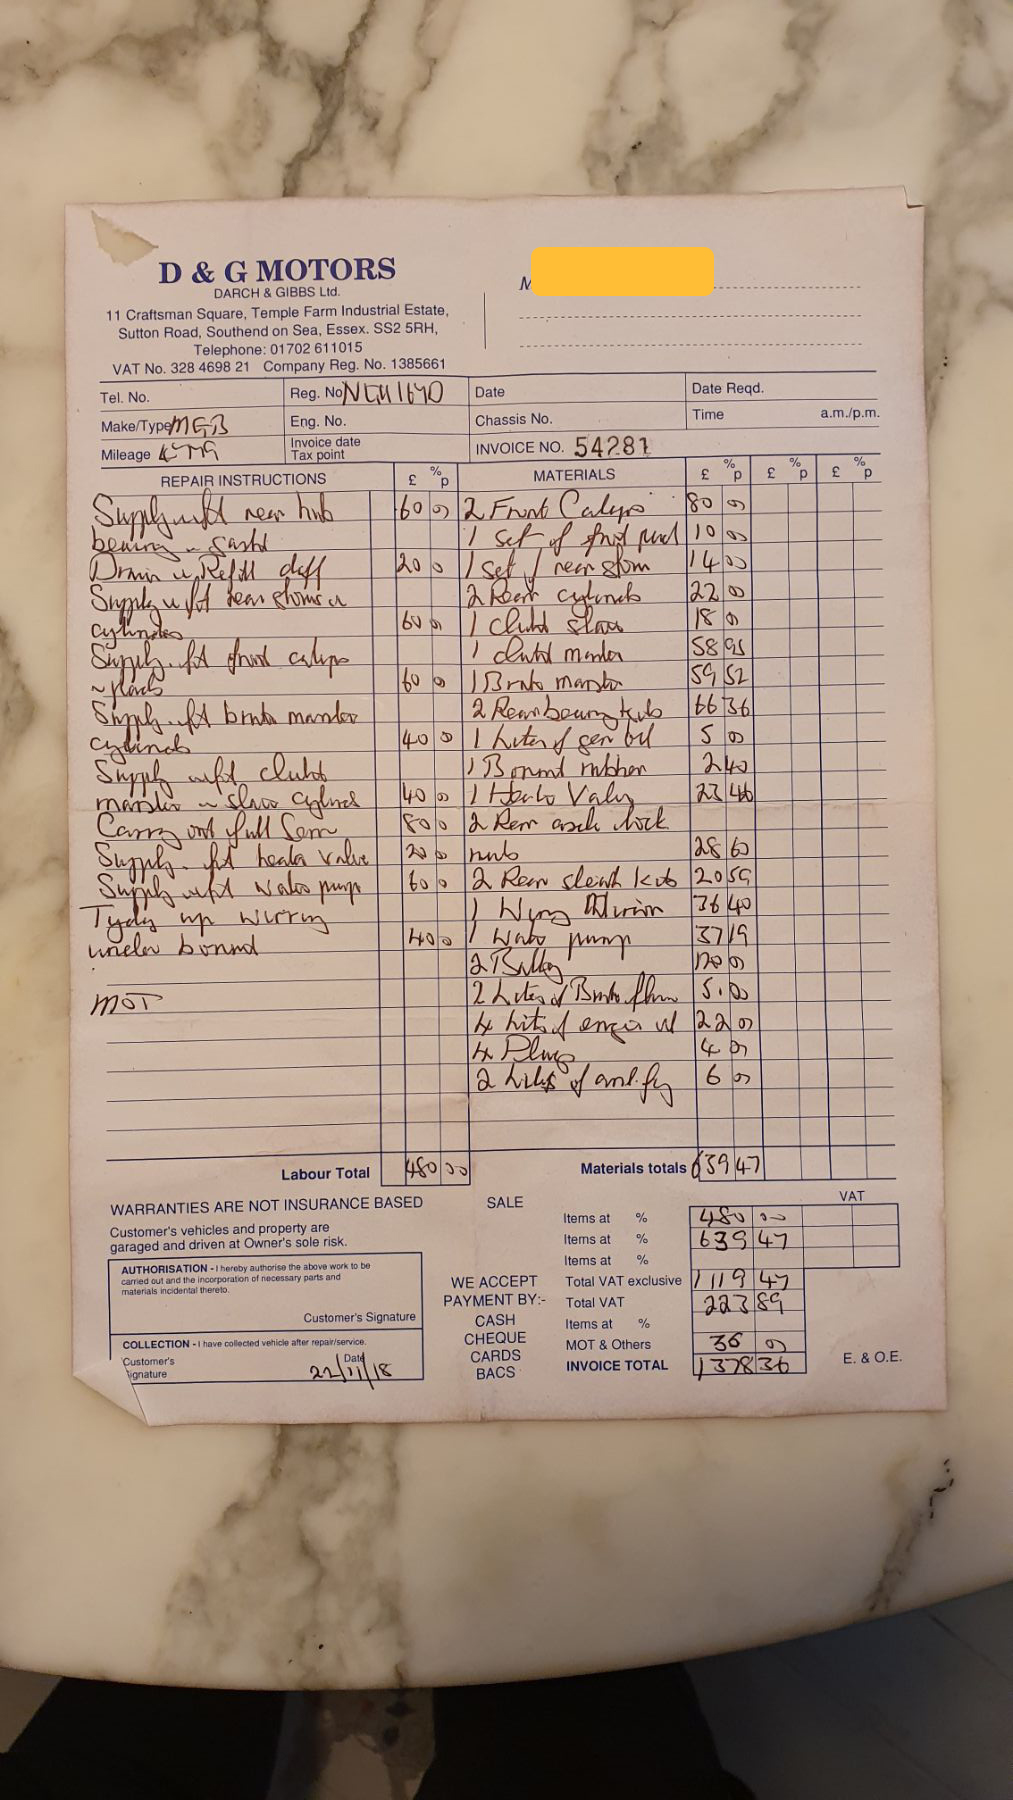 D & G MOTORS
DARCH & GIBBS Ltd.
11 Craftsman Square, Temple Farm Industrial Estate,
Sutton Road, Southend on Sea, Essex. SS2 5RH,
Telephone: 01702 611015
VAT No. 328 4698 21 Company Reg. No. 1385661
M
Tel. No.
Reg. No
Date
Date Reqd.
Make/Type MGB
Eng. No.
Chassis No.
Time a.m./p.m.
Mileage
Invoice date
Tax point
INVOICE NO. 54281
REPAIR INSTRUCTIONS £ % p MATERIALS £ % p £ % p £ % p
Supply fit rear hub 60 00 2 Front Calips 80 00
bearing 1 set of front pad 10 00
Drain Refill diff 20 0 1 set rear 14 00
Supply fit rear 2 Rear cylinds 22 00
cylinders 60 0 1 clutch slave 18 0
Supply fit front calips 1 clutch master 58 95
pads 60 0 1 Brake master 59 52
Supply fit brake master 2 Rear bearing kits 66 36
cylinder 40 0 1 Liter of gear oil 5 00
Supply fit clutch 1 Bonnet rubber 2 40
master slave cylinder 40 00 1 Heater Valve 23 46
Carry out full Serv 80 0 2 Rear lock
Supply fit heater valve 20 0 nuts 28 60
Supply fit Water pump 60 0 2 Rear kits 20 59
Tydy up wirring 1 36 40
under bonnet 40 0 1 Water pump 37 19
2 00
MOT 2 Liters of Brake 5.00
4 Lits of engin oil 22 00
4 Plugs 4 00
2 Lites of 6 00
Labour Total 480 00 Materials totals 639 47
WARRANTIES ARE NOT INSURANCE BASED
Customer's vehicles and property are
garaged and driven at Owner's sole risk.
AUTHORISATION - I hereby authorise the above work to be
carried out and the incorporation of necessary parts and
materials incidental thereto.
Customer's Signature
COLLECTION - I have collected vehicle after repair/service.
Customer's
ignature
Date
22/11/18
SALE
WE ACCEPT
PAYMENT BY:-
CASH
CHEQUE
CARDS
BACS
VAT
Items at % 480 00
Items at % 639 47
Items at %
Total VAT exclusive 1119 47
Total VAT 223 89
Items at %
MOT & Others 35 00
INVOICE TOTAL 1378 36
E. & O.E.